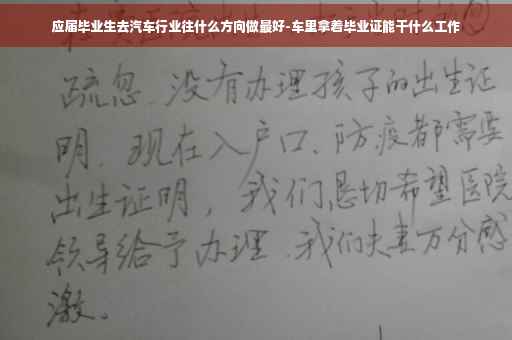 应届毕业生去汽车行业往什么方向做最好-车里拿着毕业证能干什么工作
疏忽、没有办理孩子的出生证
明、现在入户口、防疫都需要
出生证明，我们恳切希望医院
领导给予办理、我们夫妻万分感
激。